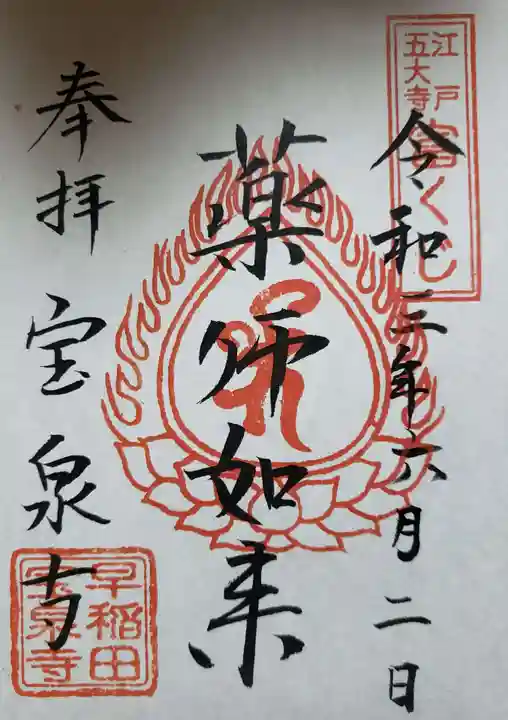 江戸
五大寺
富くじ
令和三年六月二日
薬師如来
奉拝
宝泉寺
早稲田
宝泉寺